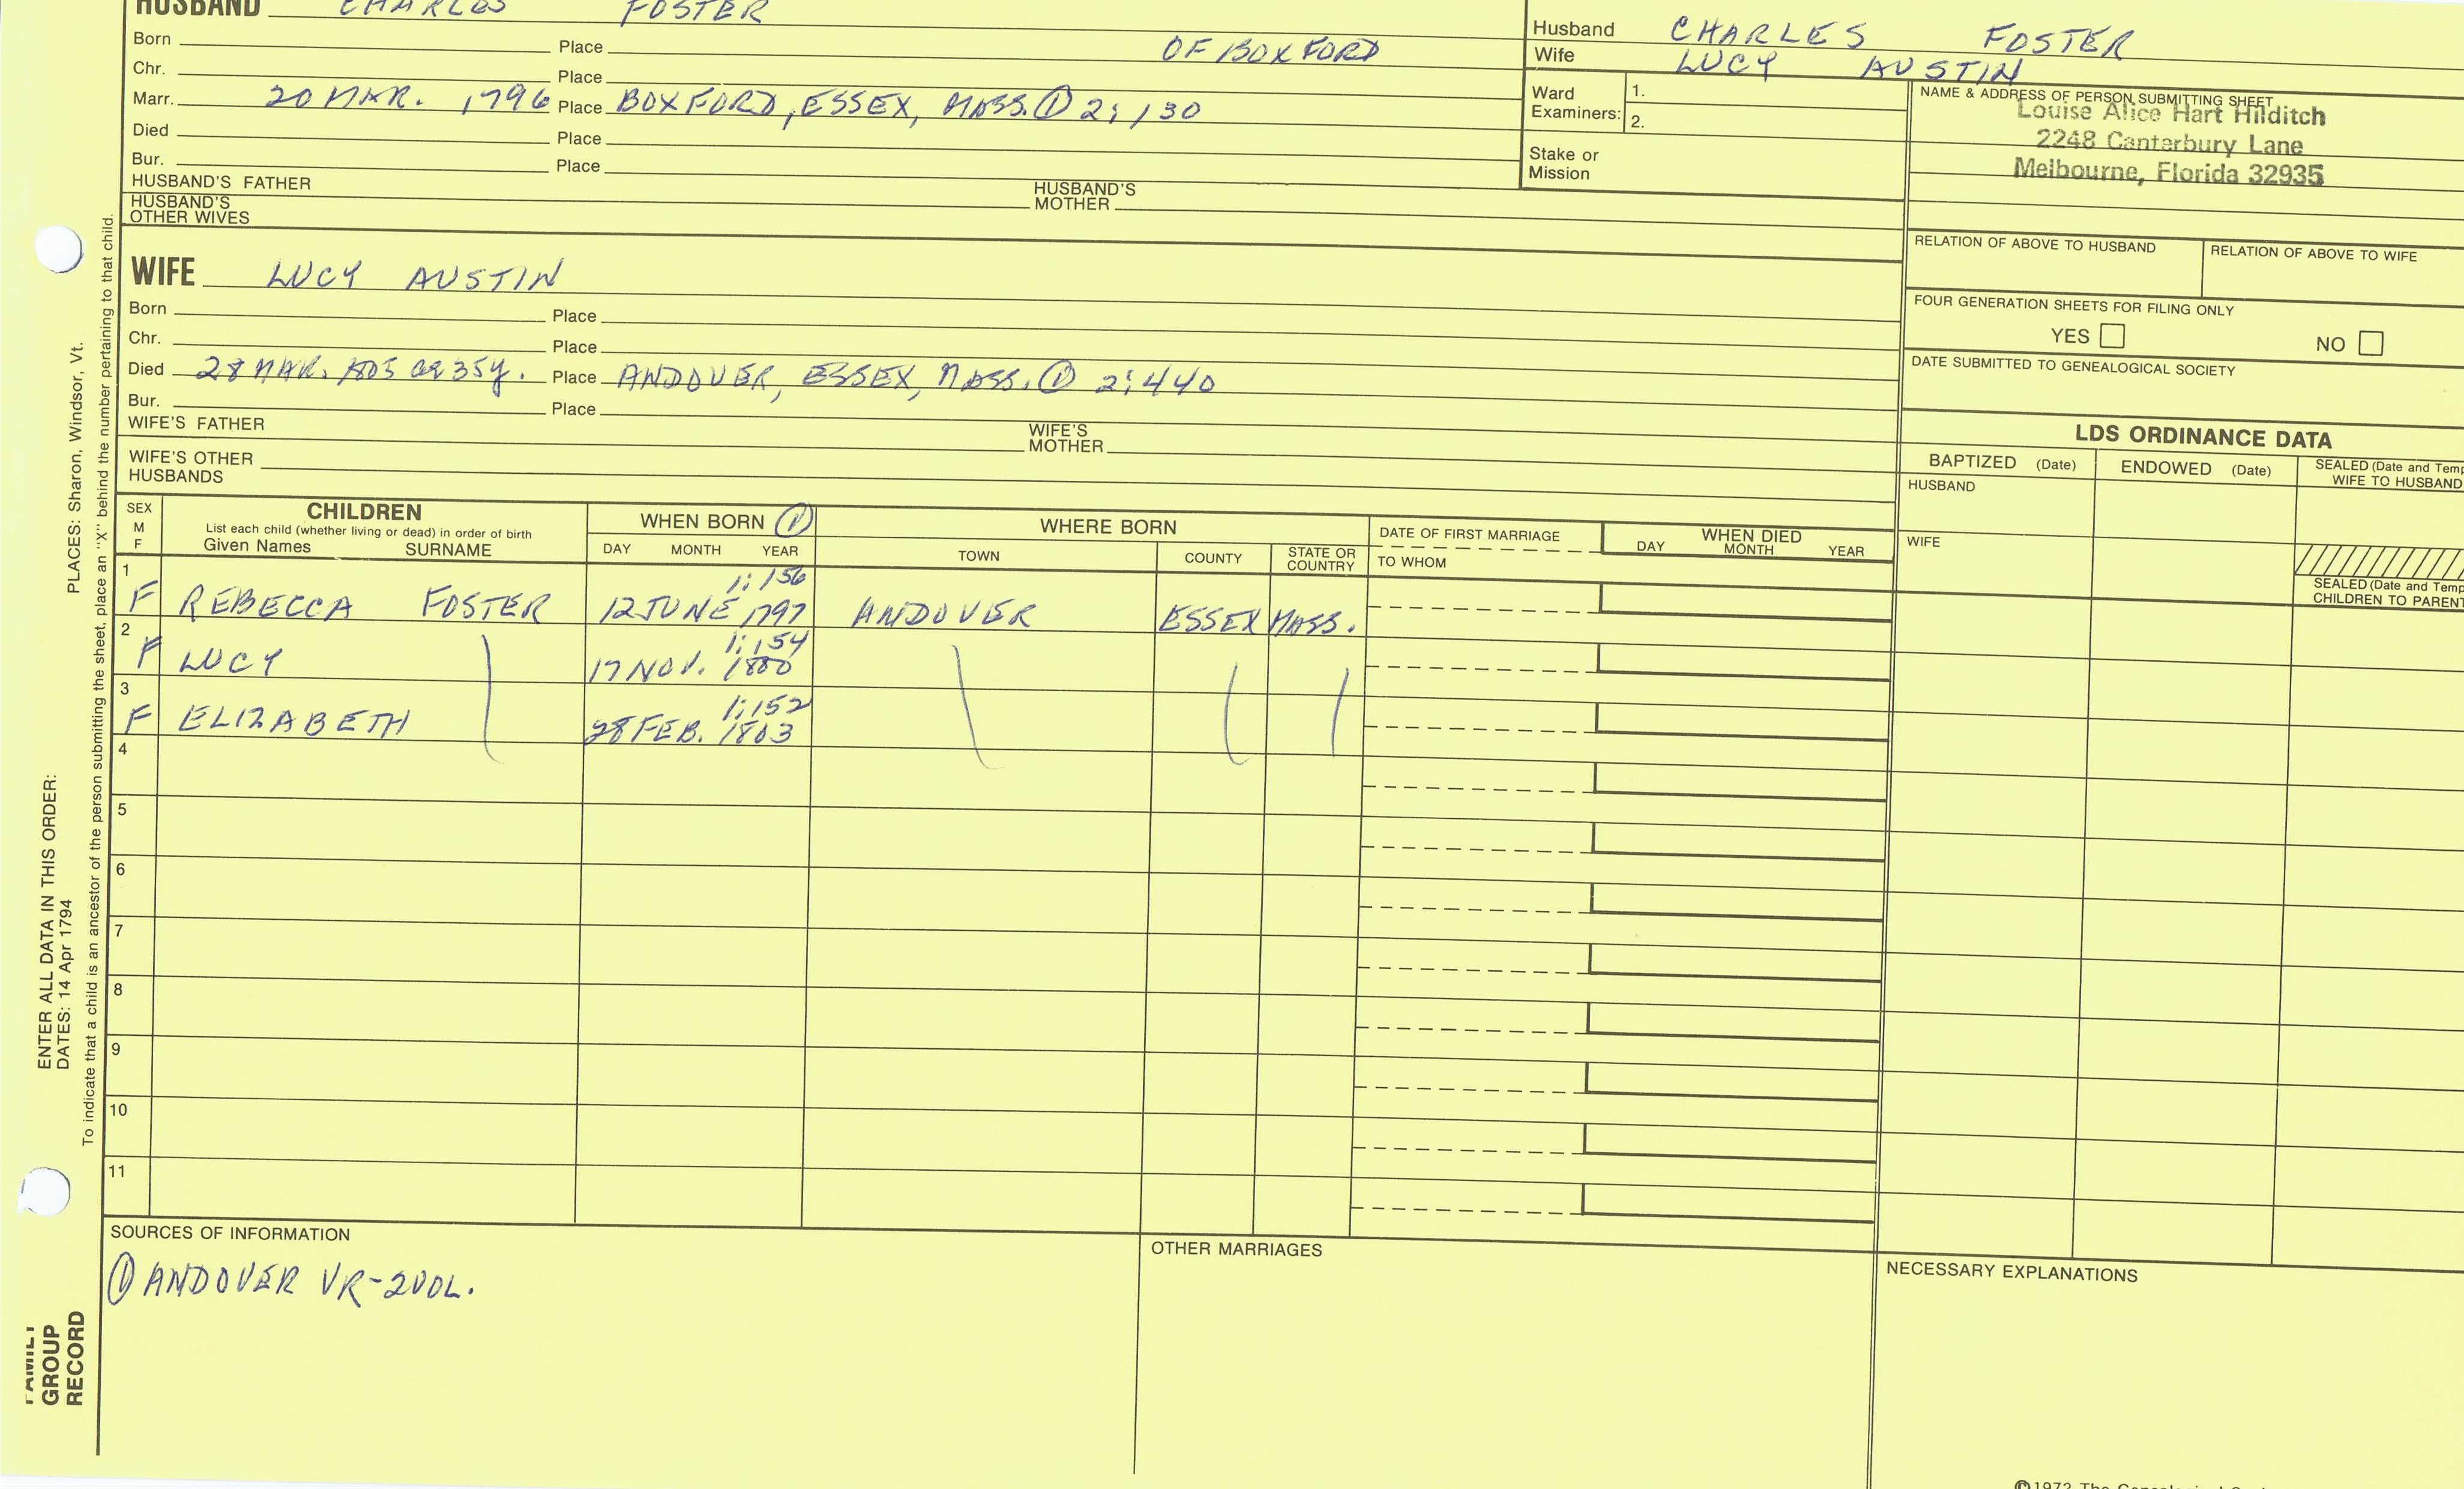 HUSBAND CHARLES FOSTER
Born Place OF BOXFORD
Chr. Place
Marr. 20 MAR. 1796 Place BOXFORD, ESSEX, MASS. ① 2:130
Died Place
Bur. Place
HUSBAND'S FATHER HUSBAND'S MOTHER
HUSBAND'S OTHER WIVES
Husband CHARLES FOSTER
Wife LUCY AUSTIN
Ward Examiners: 1.
2.
Stake or Mission
NAME & ADDRESS OF PERSON SUBMITTING SHEET
Louise Alice Hart Hilditch
2248 Canterbury Lane
Melbourne, Florida 32935
RELATION OF ABOVE TO HUSBAND RELATION OF ABOVE TO WIFE
FOUR GENERATION SHEETS FOR FILING ONLY
YES NO
DATE SUBMITTED TO GENEALOGICAL SOCIETY
WIFE LUCY AUSTIN
Born Place
Chr. Place
Died 28 MAR. 1805 ae 35y. Place ANDOVER, ESSEX, MASS. ① 2:440
Bur. Place
WIFE'S FATHER WIFE'S MOTHER
WIFE'S OTHER HUSBANDS
LDS ORDINANCE DATA
BAPTIZED (Date) ENDOWED (Date) SEALED (Date and Temp
WIFE TO HUSBAND
HUSBAND
WIFE
SEALED (Date and Temp
CHILDREN TO PARENT
SEX M F
CHILDREN
List each child (whether living or dead) in order of birth
Given Names SURNAME
WHEN BORN ①
DAY MONTH YEAR
WHERE BORN
TOWN COUNTY STATE OR COUNTRY
DATE OF FIRST MARRIAGE
TO WHOM
WHEN DIED
DAY MONTH YEAR
1 1:156
F REBECCA FOSTER 12 JUNE 1797 ANDOVER ESSEX MASS.
2 1:154
F LUCY 17 NOV. 1800
3 1:152
F ELIZABETH 28 FEB. 1803
4
5
6
7
8
9
10
11
SOURCES OF INFORMATION
① ANDOVER VR-2VOL.
OTHER MARRIAGES
NECESSARY EXPLANATIONS
PLACES: Sharon, Windsor, Vt.
To indicate that a child is an ancestor of the person submitting the sheet, place an "X" behind the number pertaining to that child.
ENTER ALL DATA IN THIS ORDER:
DATES: 14 Apr 1794
FAMILY
GROUP
RECORD
©1972 The Genealogical